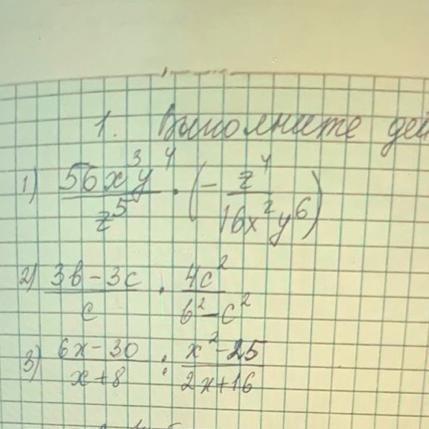 1. Выполните дей
1) 56x³y⁴/z⁵ · (− z⁴/16x²y⁶)
2) 3b−3c/c · 4c²/b²−c²
3) 6x−30/x+8 : x²−25/2x+16